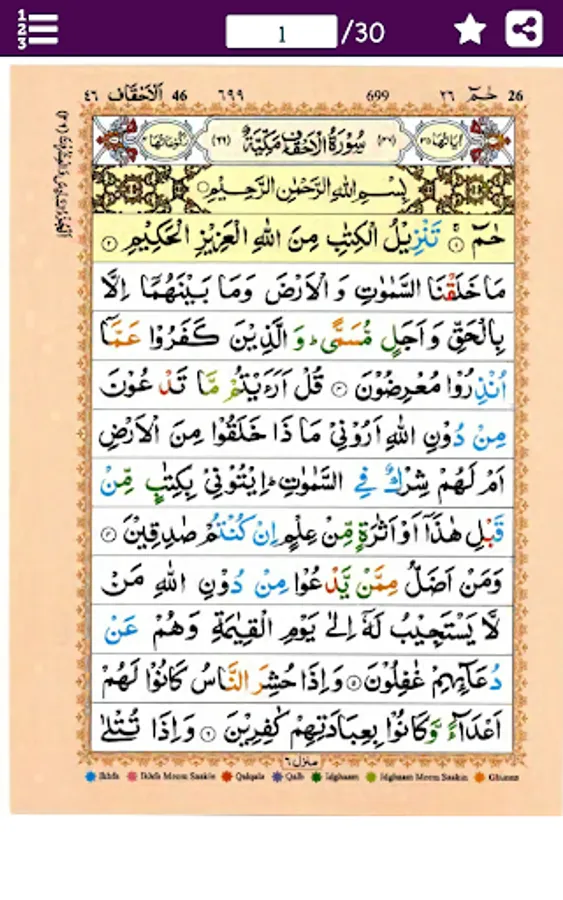 1 2 3
1 /30
ٱلۡاَحۡقَاف ٤٦ 46 ٦٩٩ 699 حٰمٓ ٢٦ 26
سُوۡرَةُ الۡاَحۡقَافِ مَكِّيَّةٌ
بِسۡمِ اللهِ الرَّحۡمٰنِ الرَّحِيۡمِ
حٰمٓ ۚ‏ ١ تَنۡزِيۡلُ الۡكِتٰبِ مِنَ اللّٰهِ الۡعَزِيۡزِ الۡحَكِيۡمِ ٢
مَا خَلَقۡنَا السَّمٰوٰتِ وَ الۡاَرۡضَ وَمَا بَيۡنَهُمَاۤ اِلَّا
بِالۡحَقِّ وَ اَجَلٍ مُّسَمًّى‌ؕ وَ الَّذِيۡنَ كَفَرُوۡا عَمَّاۤ
اُنۡذِرُوۡا مُعۡرِضُوۡنَ ٣ قُلۡ اَرَءَيۡتُمۡ مَّا تَدۡعُوۡنَ
مِنۡ دُوۡنِ اللّٰهِ اَرُوۡنِىۡ مَا ذَا خَلَقُوۡا مِنَ الۡاَرۡضِ
اَمۡ لَهُمۡ شِرۡكٌ فِى السَّمٰوٰتِ‌ؕ اِيۡتُوۡنِىۡ بِكِتٰبٍ مِّنۡ
قَبۡلِ هٰذَاۤ اَوۡ اَثٰرَةٍ مِّنۡ عِلۡمٍ اِنۡ كُنۡتُمۡ صٰدِقِيۡنَ ٤
وَمَنۡ اَضَلُّ مِمَّنۡ يَّدۡعُوۡا مِنۡ دُوۡنِ اللّٰهِ مَنۡ
لَّا يَسۡتَجِيۡبُ لَهٗۤ اِلٰى يَوۡمِ الۡقِيٰمَةِ وَهُمۡ عَنۡ
دُعَآٮِٕهِمۡ غٰفِلُوۡنَ ٥ وَاِذَا حُشِرَ النَّاسُ كَانُوۡا لَهُمۡ
اَعۡدَآءً وَّ كَانُوۡا بِعِبَادَتِهِمۡ كٰفِرِيۡنَ ٦ وَاِذَا تُتۡلٰى
منزل ٦
Ikhfa Ikhfa Meem Saakin Qalqala Qalb Idghaam Idghaam Meem Saakin Ghunna